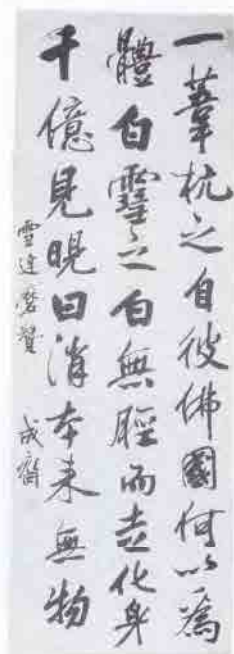 一葦杭之自彼佛國何以爲
體白雪之白無脛而走化身
千億見晛曰消本来無物
雪達磨賛　成齋